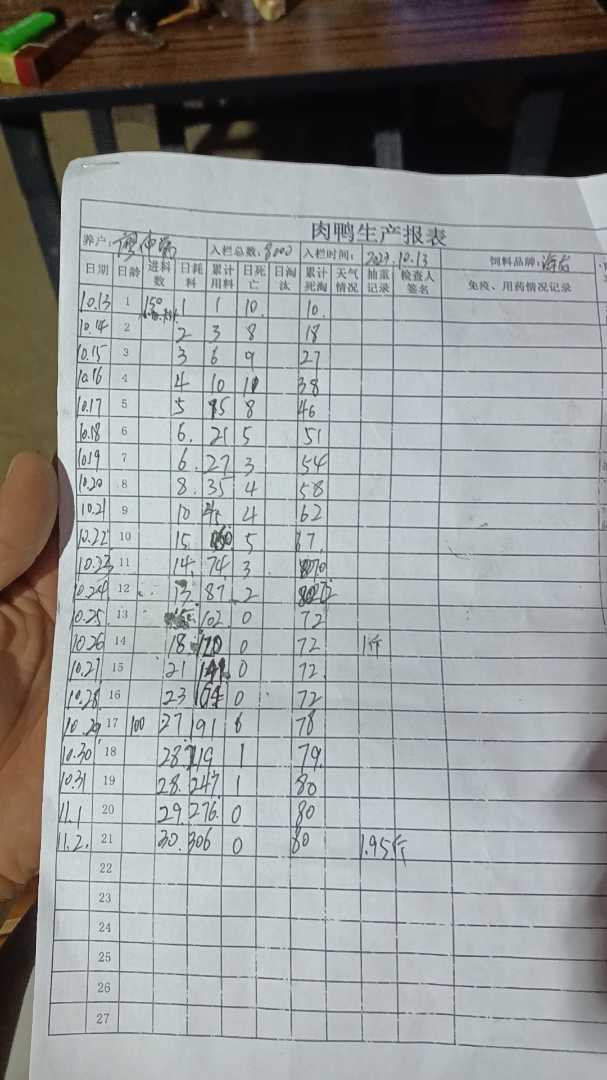 肉鸭生产报表
养户: 入栏总数: 8000 入栏时间: 10.13 饲料品牌:
日期 日龄 进料数 日耗料 累计用料 日死亡 日淘汰 累计死淘 天气情况 抽重记录 检查人签名 免疫、用药情况记录
10.13 1 150 1 1 10. 10.
10.14 2 2 3 8 18
10.15 3 3 6 9 27
10.16 4 4 10 11 38
10.17 5 5 15 8 46
10.18 6 6. 21 5 51
10.19 7 6. 27 3 54
10.20 8 8. 35 4 58
10.21 9 10 45 4 62
10.22 10 15 60 5 67.
10.23 11 14. 74 3 70
10.24 12 13 87. 2 72
10.25. 13 15 102. 0 72
10.26 14 18 120 0 72 1斤
10.27 15 21 141 0 72.
10.28. 16 23 164 0 72
10.29 17 100 27. 191 6 78
10.30 18 28. 219 1 79.
10.31 19 28. 247. 1 80.
11.1 20 29. 276. 0 80
11.2. 21 30. 306 0 80 1.95斤
22
23
24
25
26
27